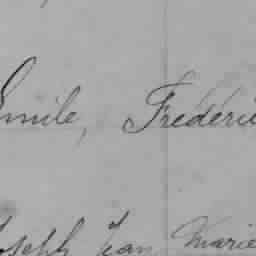 Emile, Frédéric
Joseph Jean Marie